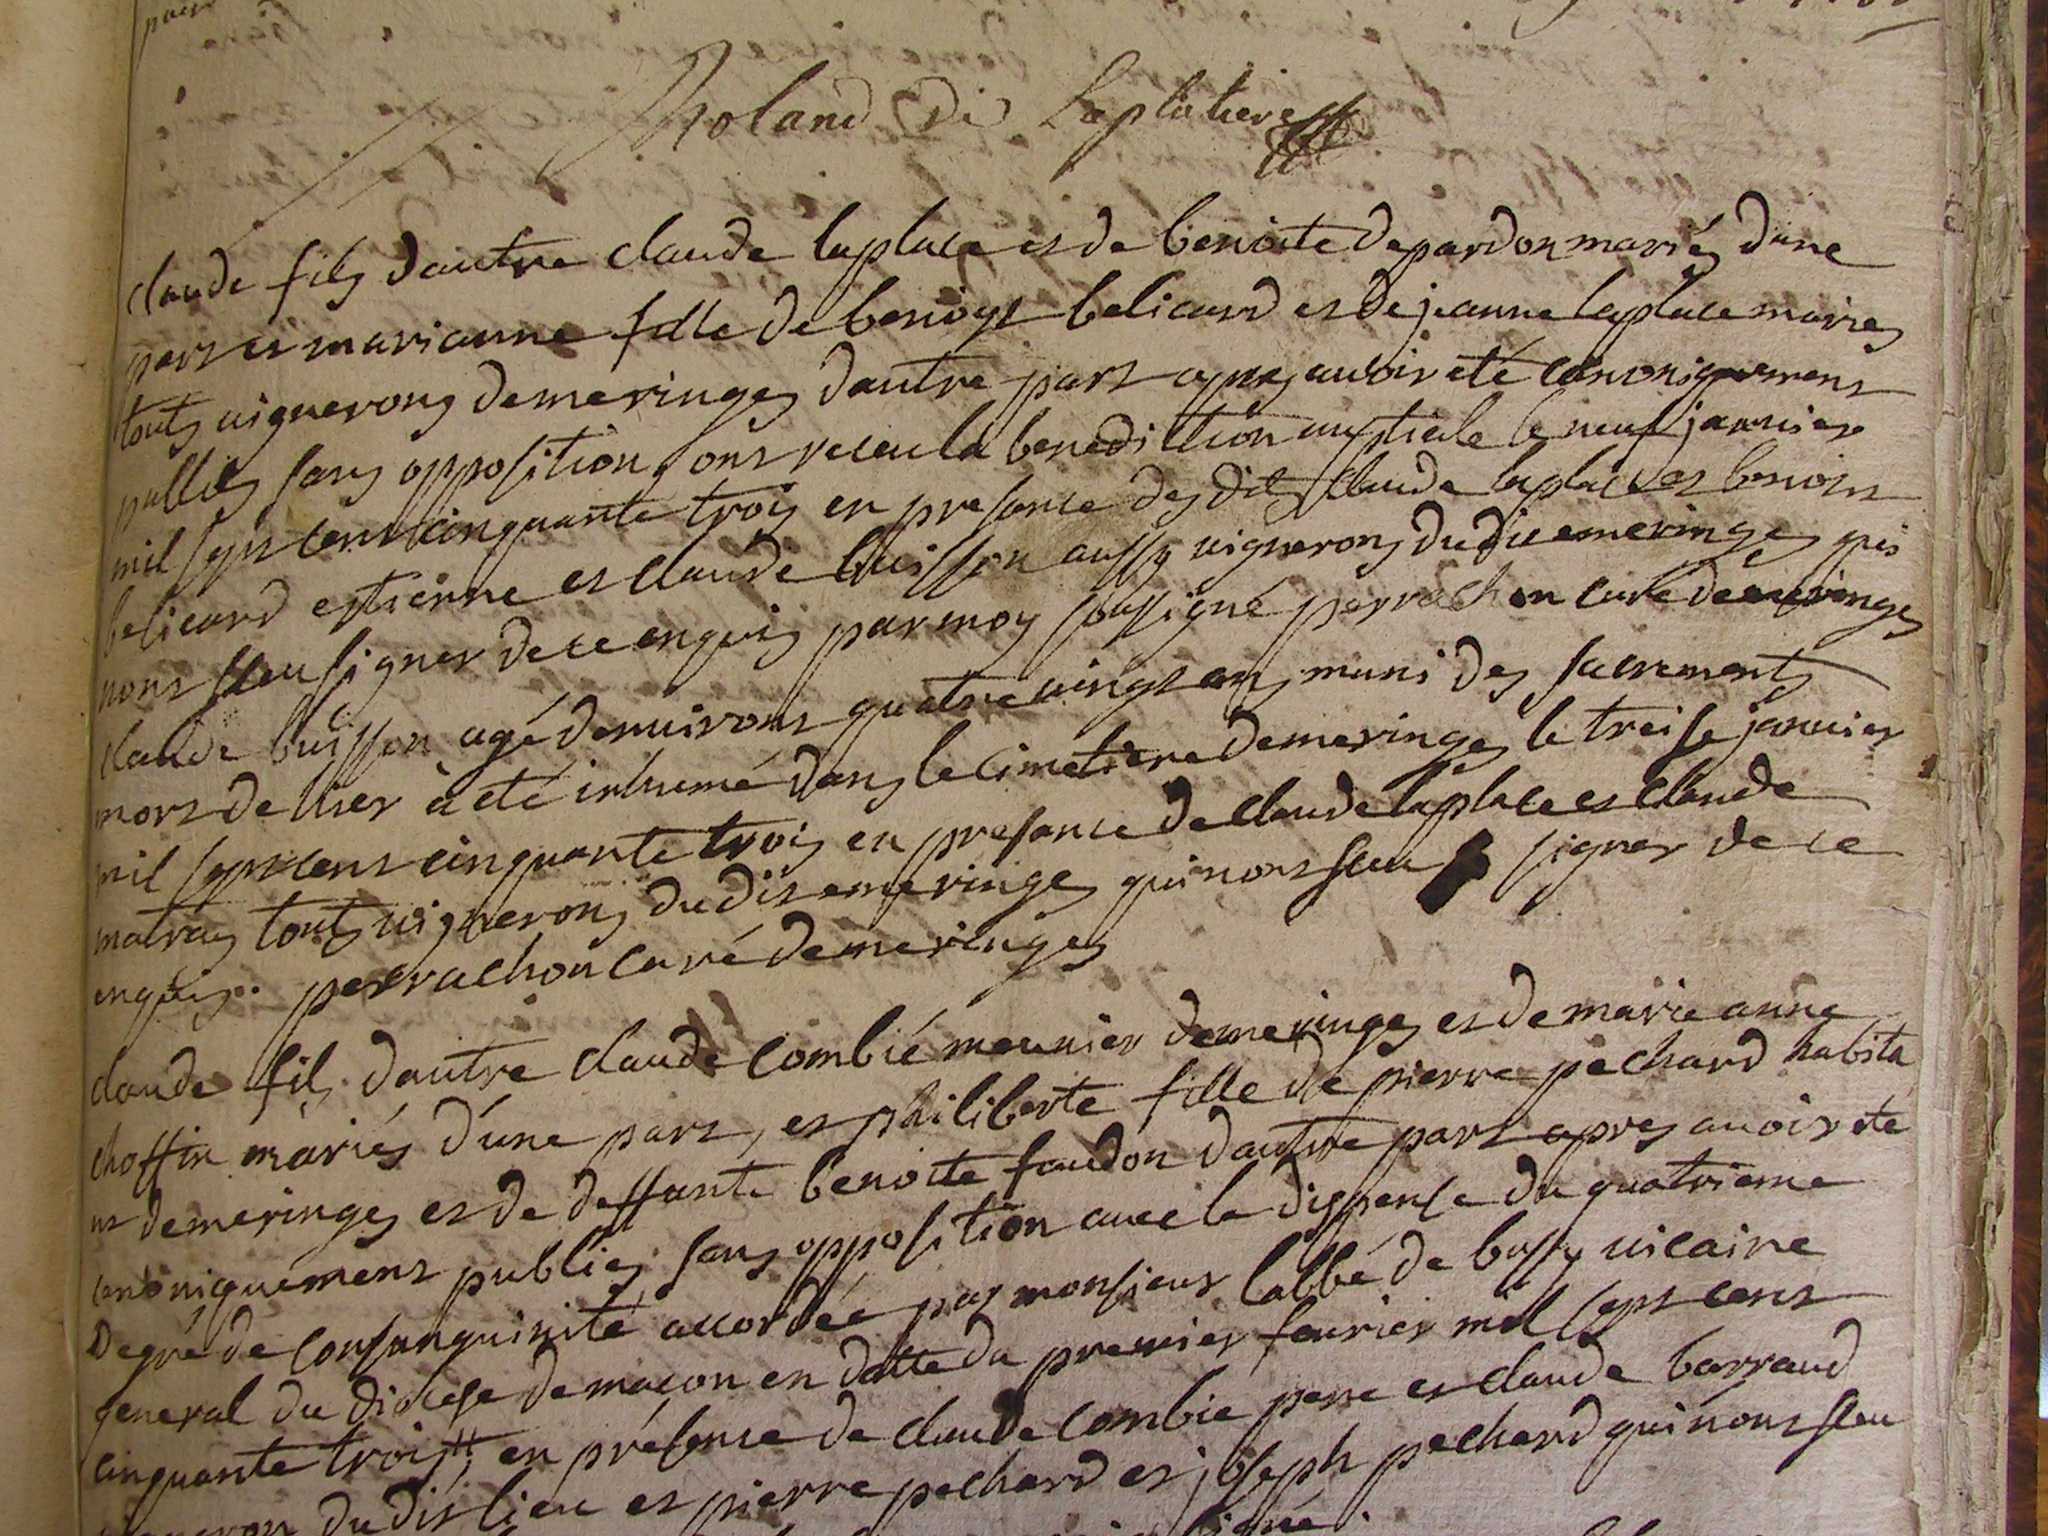 Rholand De Laplatiere
claude fils dautre claude laplace et de benoite depardon mariés dune
part et marianne fille de benoyt belicard et de jeanne laplace mariés
touts vignerons demeringes dautre part apres avoir eté canoniquement
publiés sans opposition, ont receu la benediction nuptiale le neuf janvier
mil sept cent cinquante trois en presance des dits claude laplace et benoist
belicard estienne et claude buisson aussy vignerons dudit emeringes qui
nont sceu signer de ce enquis par moy soussigné perrachon curé demeringes
claude buisson agé denviront quatre vingt ans muni des sacrements
mort de hier à eté inhumé dans le cimetiere demeringes le treise janvier
mil sept cent cinquante trois en presance de claude laplace et claude
matray touts vignerons dudit emeringes qui nont sceu signer de ce
enquis. perrachon curé demeringes
claude fils dautre claude combié meunier demeringes et de marie anne
choffin mariés d'une part, et philiberte fille de pierre pechard habita
nt demeringes et de deffunte benoite faudon dautre part apres avoir eté
canoniquement publiés sans opposition avec la dispense du quatrieme
Degré de consanguinité accordée par monsieur labbé de bussy vicaire
general du diocese de macon en datte du premier fevrier mil sept cent
cinquante trois, en présence de claude combié pere et claude barraud
vigneron dudit lieu et pierre pechard et joseph pechard qui nont sceu